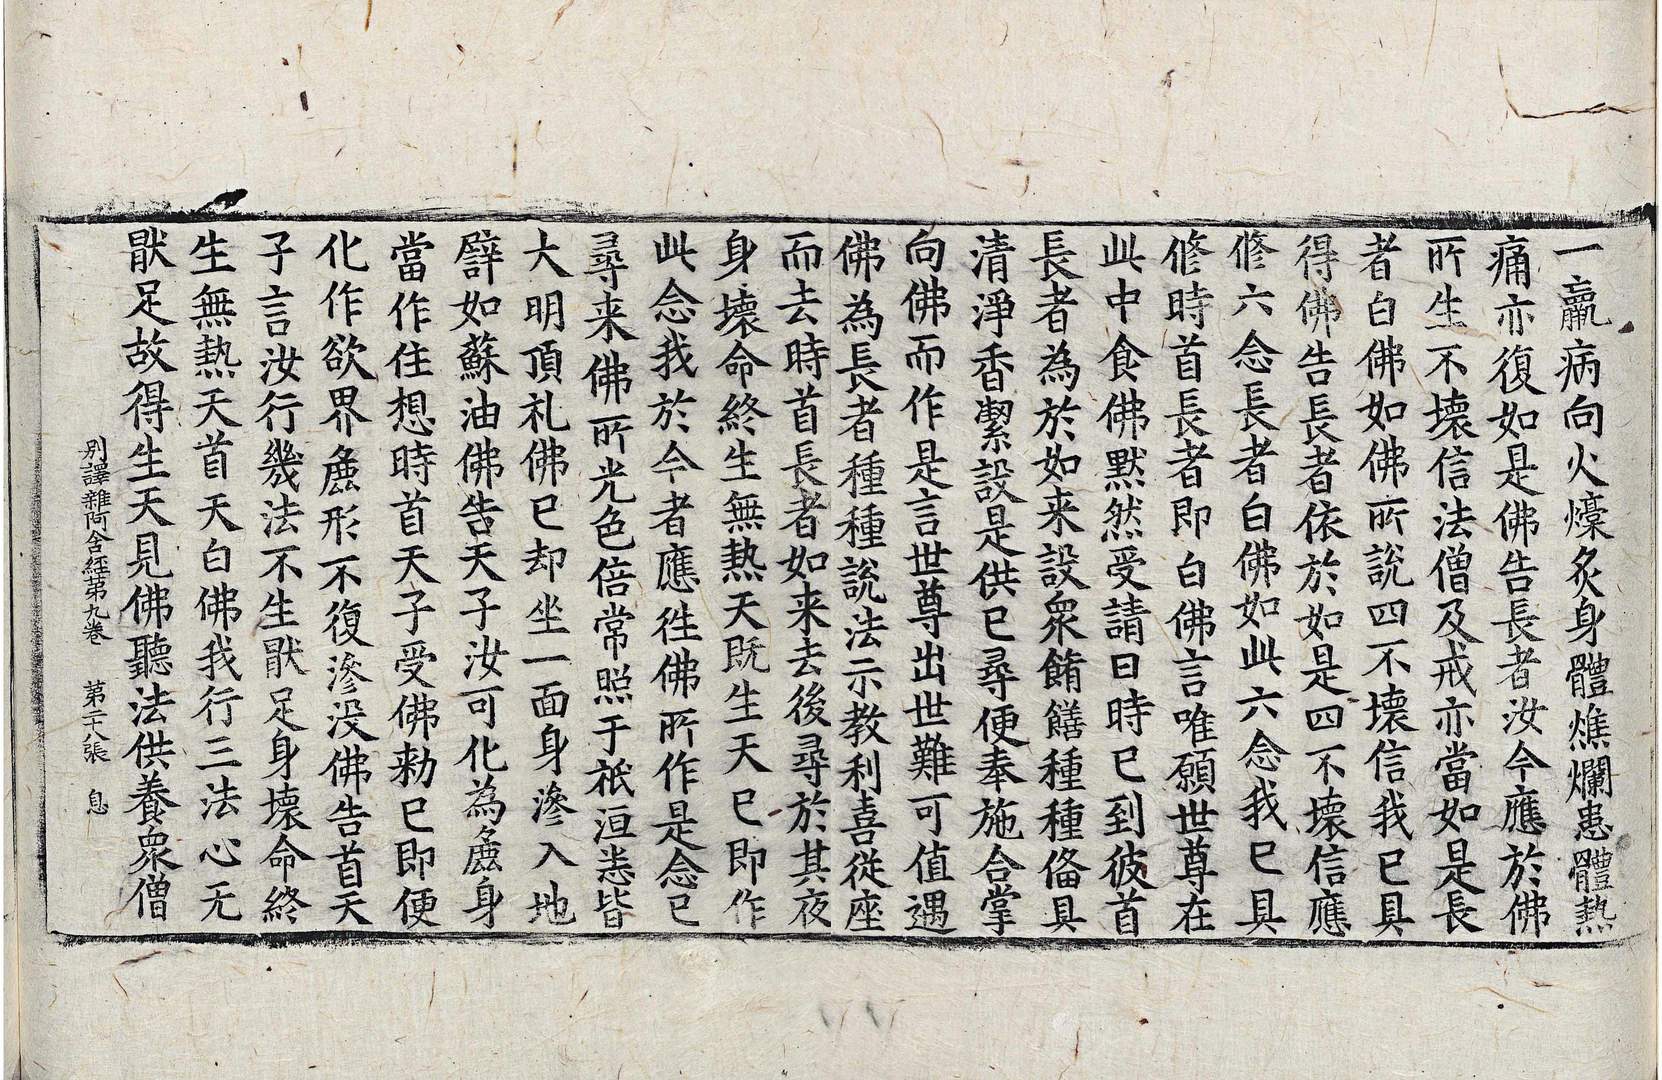 一羸病向火爁炙身體燋爛患體熱
痛亦復如是佛告長者汝今應於佛
所生不壞信法僧及戒亦當如是長
者白佛如佛所說四不壞信我已具
得佛告長者依於如是四不壞信應
修六念長者白佛如此六念我已具
修時首長者即白佛言唯願世尊在
此中食佛默然受請日時已到彼首
長者為於如来設衆餚饍種種俻具
清淨香潔設是供已尋便奉施合掌
向佛而作是言世尊出世難可值遇
佛為長者種種說法示教利喜從座
而去時首長者如来去後尋於其夜
身壞命終生無熱天既生天已即作
此念我於今者應徃佛所作是念已
尋来佛所光色倍常照于祇洹悉皆
大明頂礼佛已却坐一面身滲入地
譬如蘇油佛告天子汝可化為麁身
當作住想時首天子受佛勑已即便
化作欲界麁形不復滲没佛告首天
子言汝行幾法不生猒足身壞命終
生無熱天首天白佛我行三法心无
猒足故得生天見佛聽法供養衆僧
別譯雜阿含經第九卷　第二十八張　息